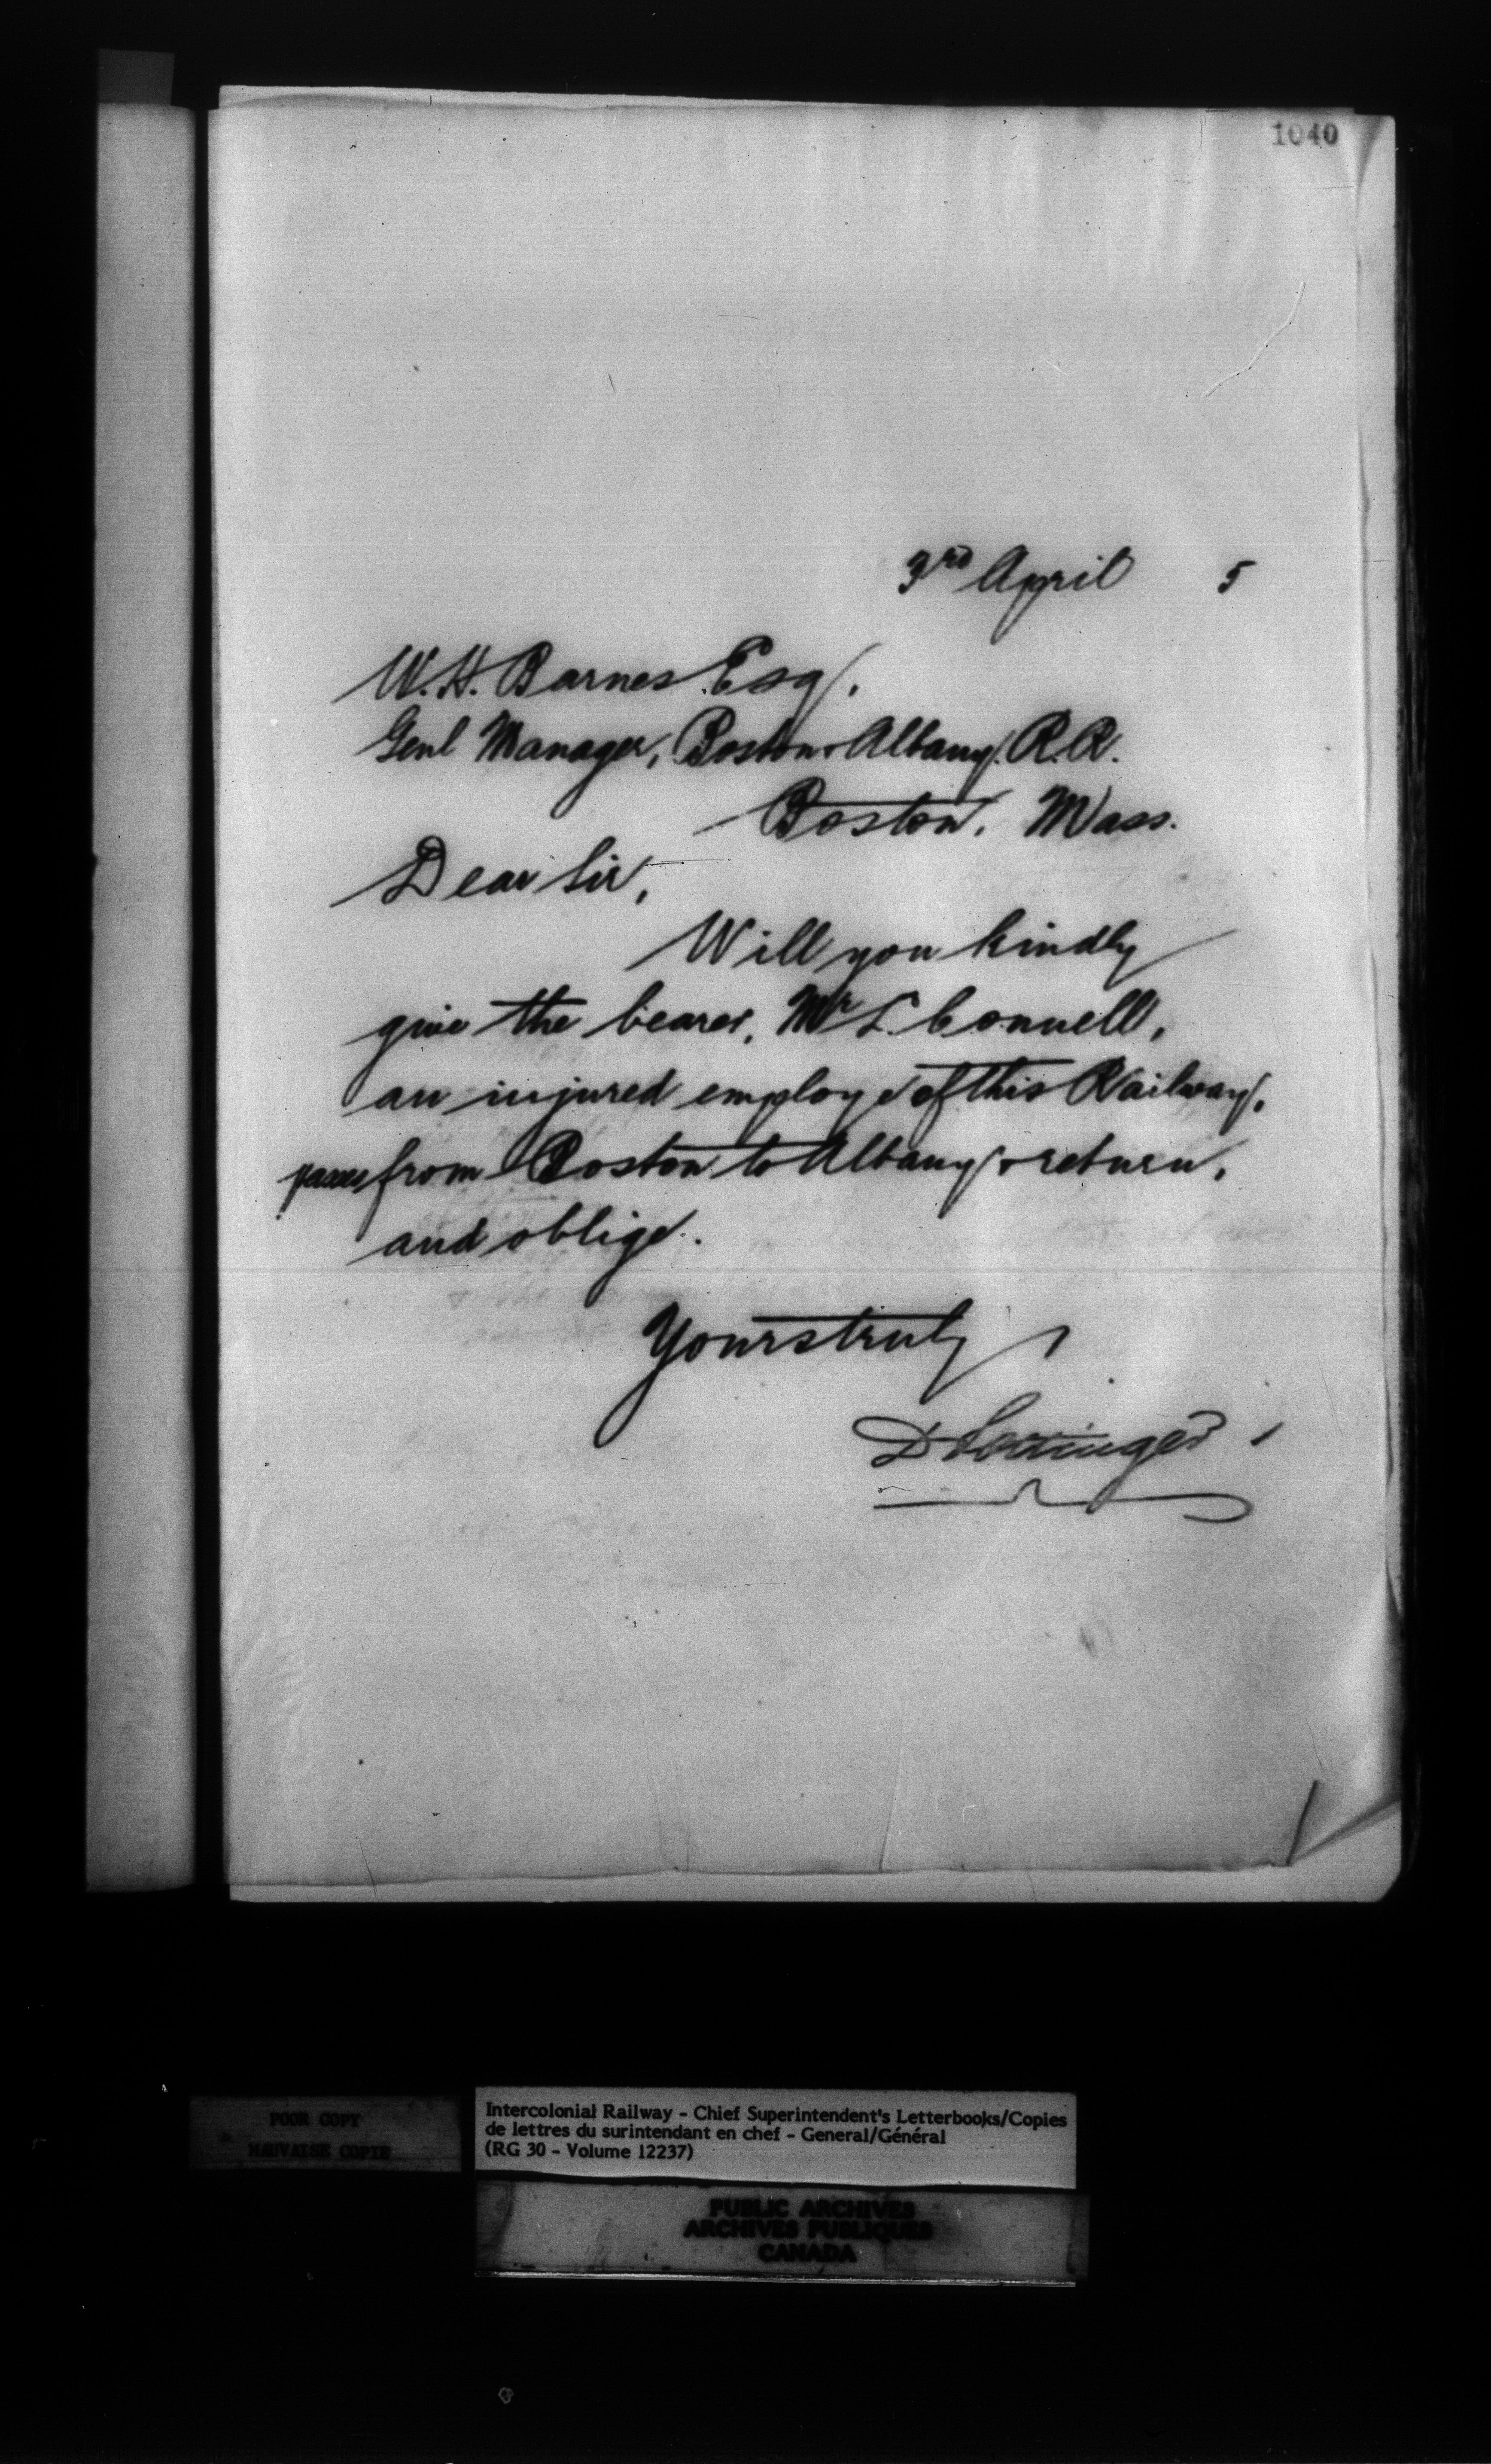 1040
3rd April 5
W. H. Barnes Esq.
Genl Manager, Boston & Albany R. R.
Boston, Mass.
Dear Sir,
Will you kindly
give the bearer, Mr L. Connell,
an injured employe of this Railway,
passes from Boston to Albany & return,
and oblige.
Yours truly
D Pottinger
POOR COPY
MAUVAISE COPIE
Intercolonial Railway - Chief Superintendent's Letterbooks/Copies
de lettres du surintendant en chef - General/Général
(RG 30 - Volume 12237)
PUBLIC ARCHIVES
ARCHIVES PUBLIQUES
CANADA